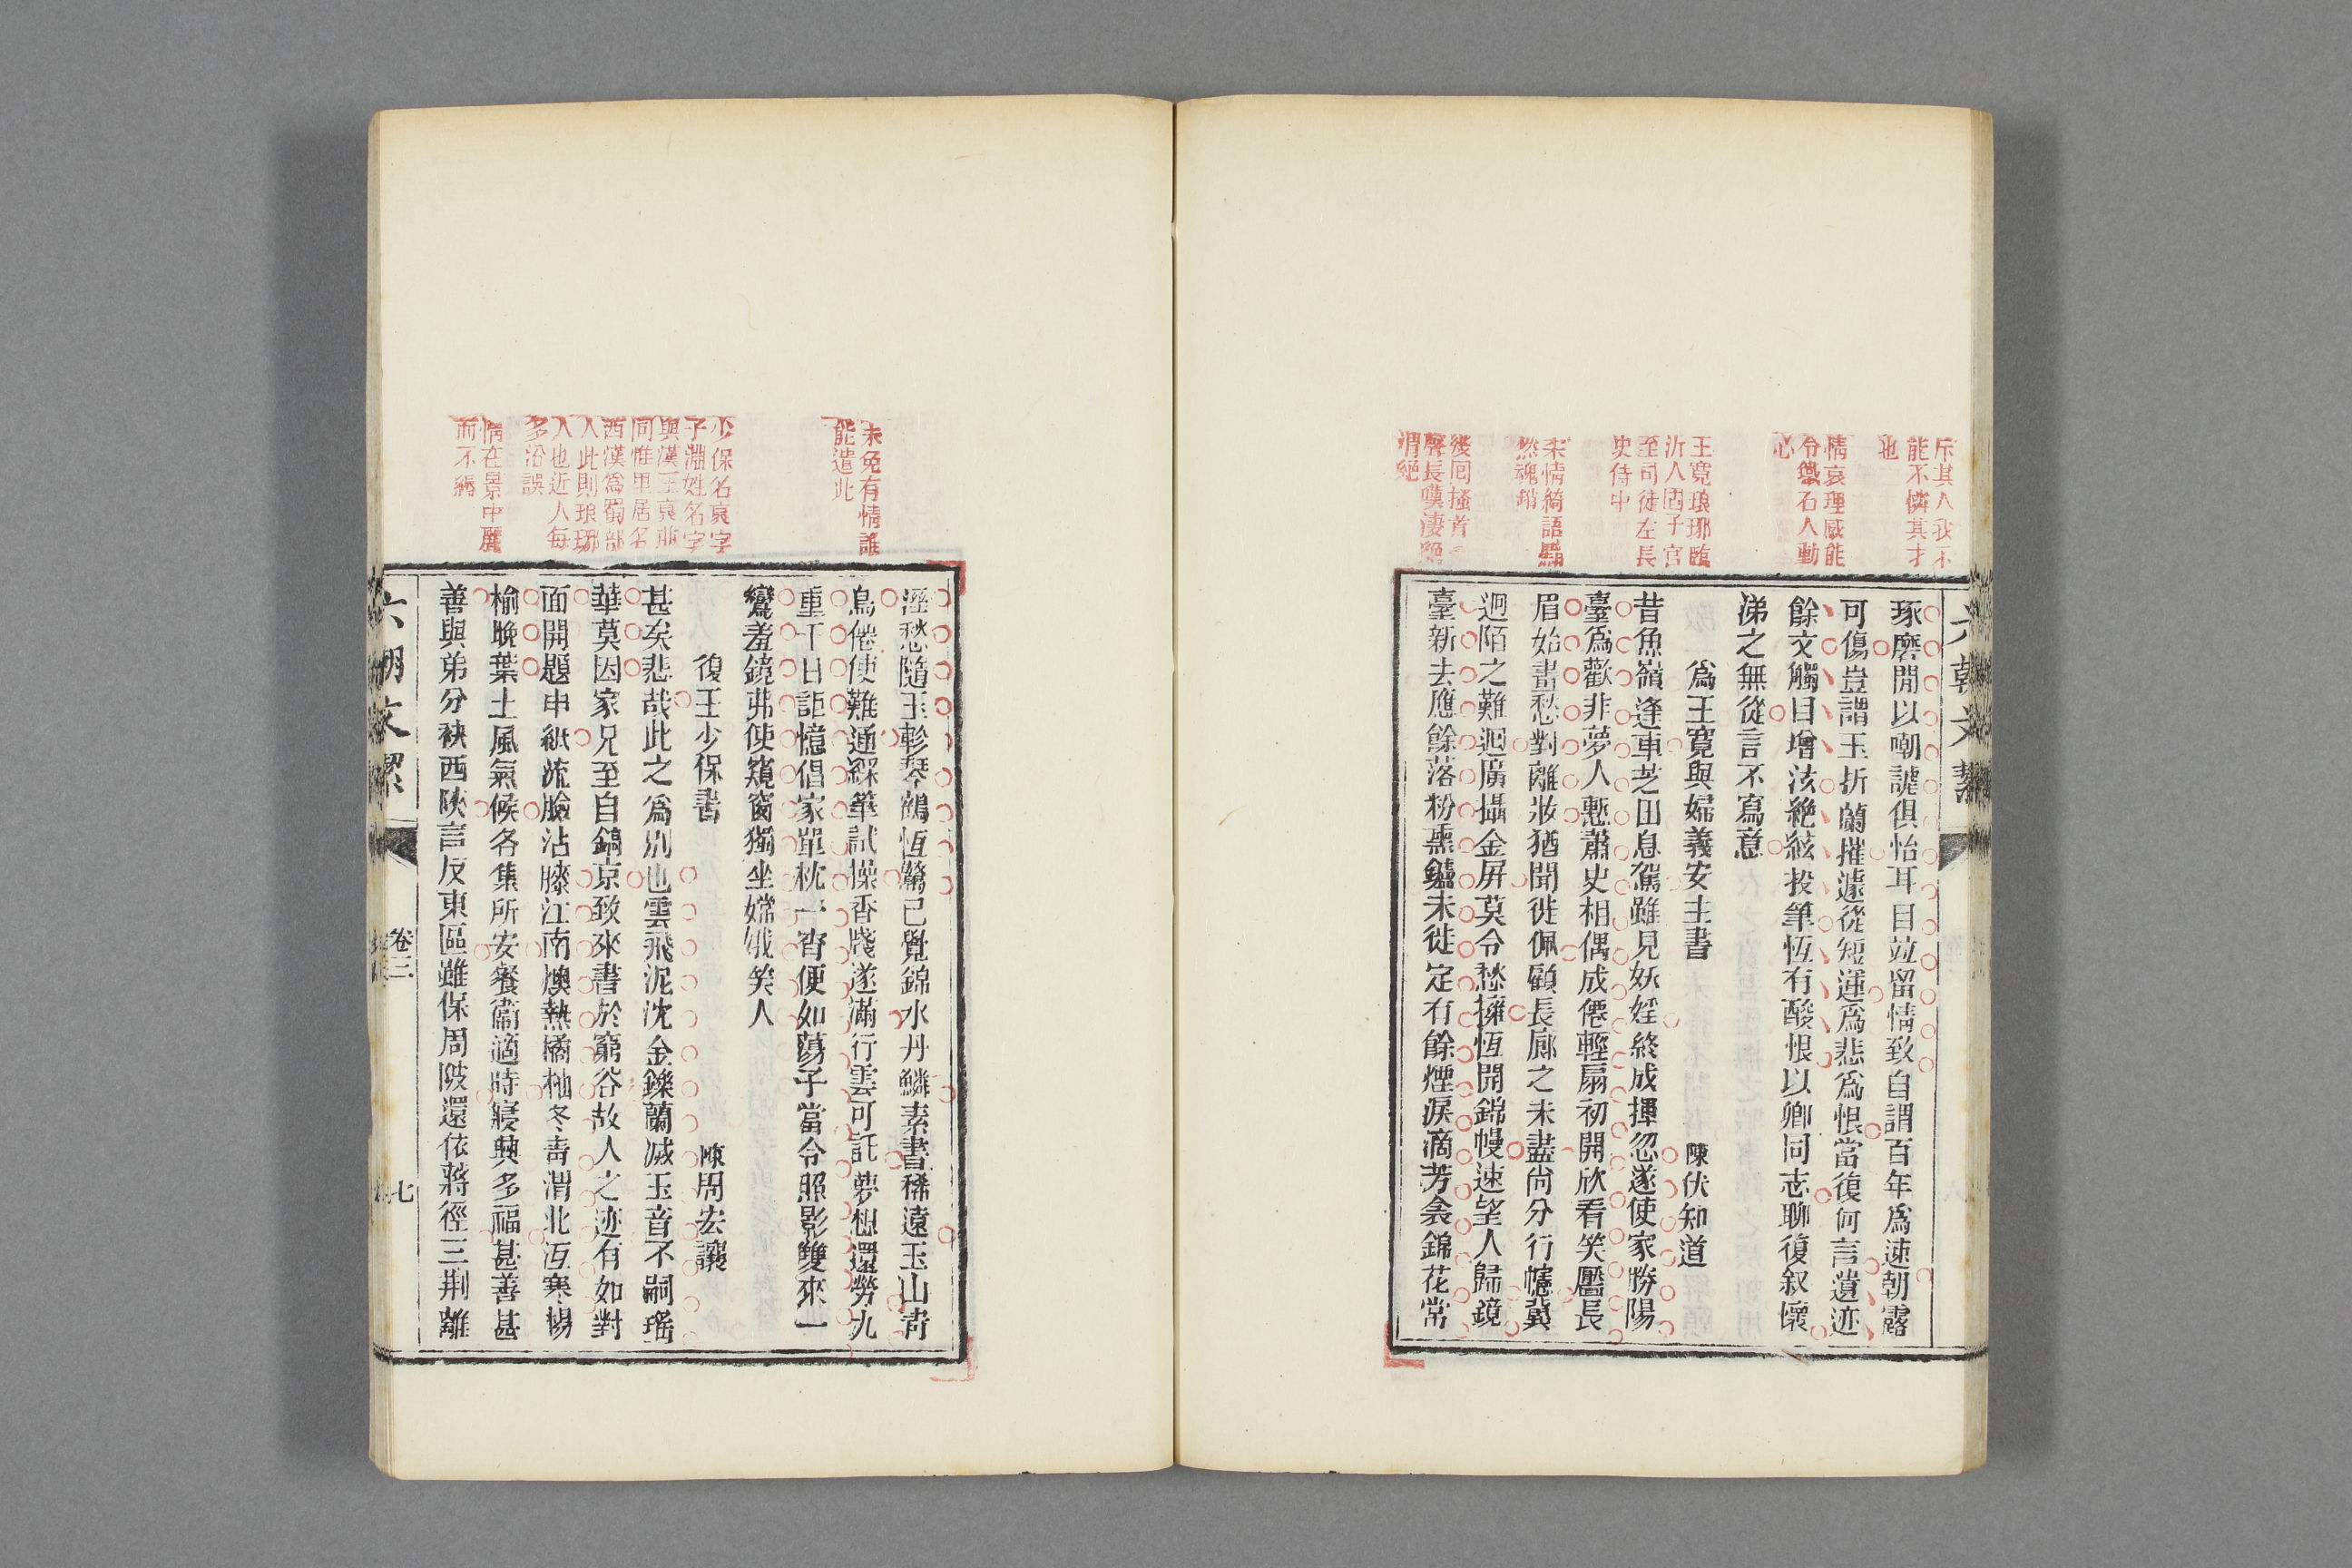 斥其人我不
能不憐其才
也
情哀理感能
令鐵石人動
心
王寛琅琊臨
沂人固子官
至司徒左長
史侍中
柔情綺語黯
然魂銷
後囘搔首
聲長嘆凄絕
六朝文絜
琢磨閒以嘲謔俱怡耳目竝留情致自謂百年爲速朝露
可傷豈謂玉折蘭摧遽從短運爲悲爲恨當復何言遺迹
餘文觸目增泫絕絃投筆恆有酸恨以卿同志聊復叙懷
涕之無從言不寫意
爲王寛與婦義安主書 陳伏知道
昔魚嶺逢車芝田息駕雖見妖婬終成揮忽遂使家勝陽
臺爲歡非夢人慙蕭史相偶成僊輕扇初開欣看笑靨長
眉始畫愁對離妝猶聞徙佩顧長廊之未盡尚分行幰冀
迥陌之難迴廣攝金屏莫令愁擁恆開錦幔速望人歸鏡
臺新去應餘落粉熏鑪未徙定有餘煙淚滴芳衾錦花常
未免有情誰
能遣此
少保名襃字
子淵姓名字
與漢王襃非
同惟里居名
西漢爲蜀郡
人此則琅琊
人也近人每
多沿誤
情在景中麗
而不縟
溼愁隨玉軫琴鶴恆驚已覺錦水丹鱗素書稀遠玉山青
鳥僊使難通綵筆試操香牋遂滿行雲可託夢想還勞九
重千日詎憶倡家單枕一宵便如蕩子當令照影雙來一
鸞羞鏡弗使窺窗獨坐嫦娥笑人
復王少保書 陳周宏讓
甚矣悲哉此之爲別也雲飛泥沈金鑠蘭滅玉音不嗣瑤
華莫因家兄至自鎬京致來書於窮谷故人之迹有如對
面開題申紙流臉沾膝江南燠熱橘柚冬青渭北沍寒楊
榆晚葉土風氣候各集所安餐衞適時寢興多福甚善甚
善與弟分袂西陝言反東區雖保周陂還依蔣徑三荆離
六朝文絜
卷三
七